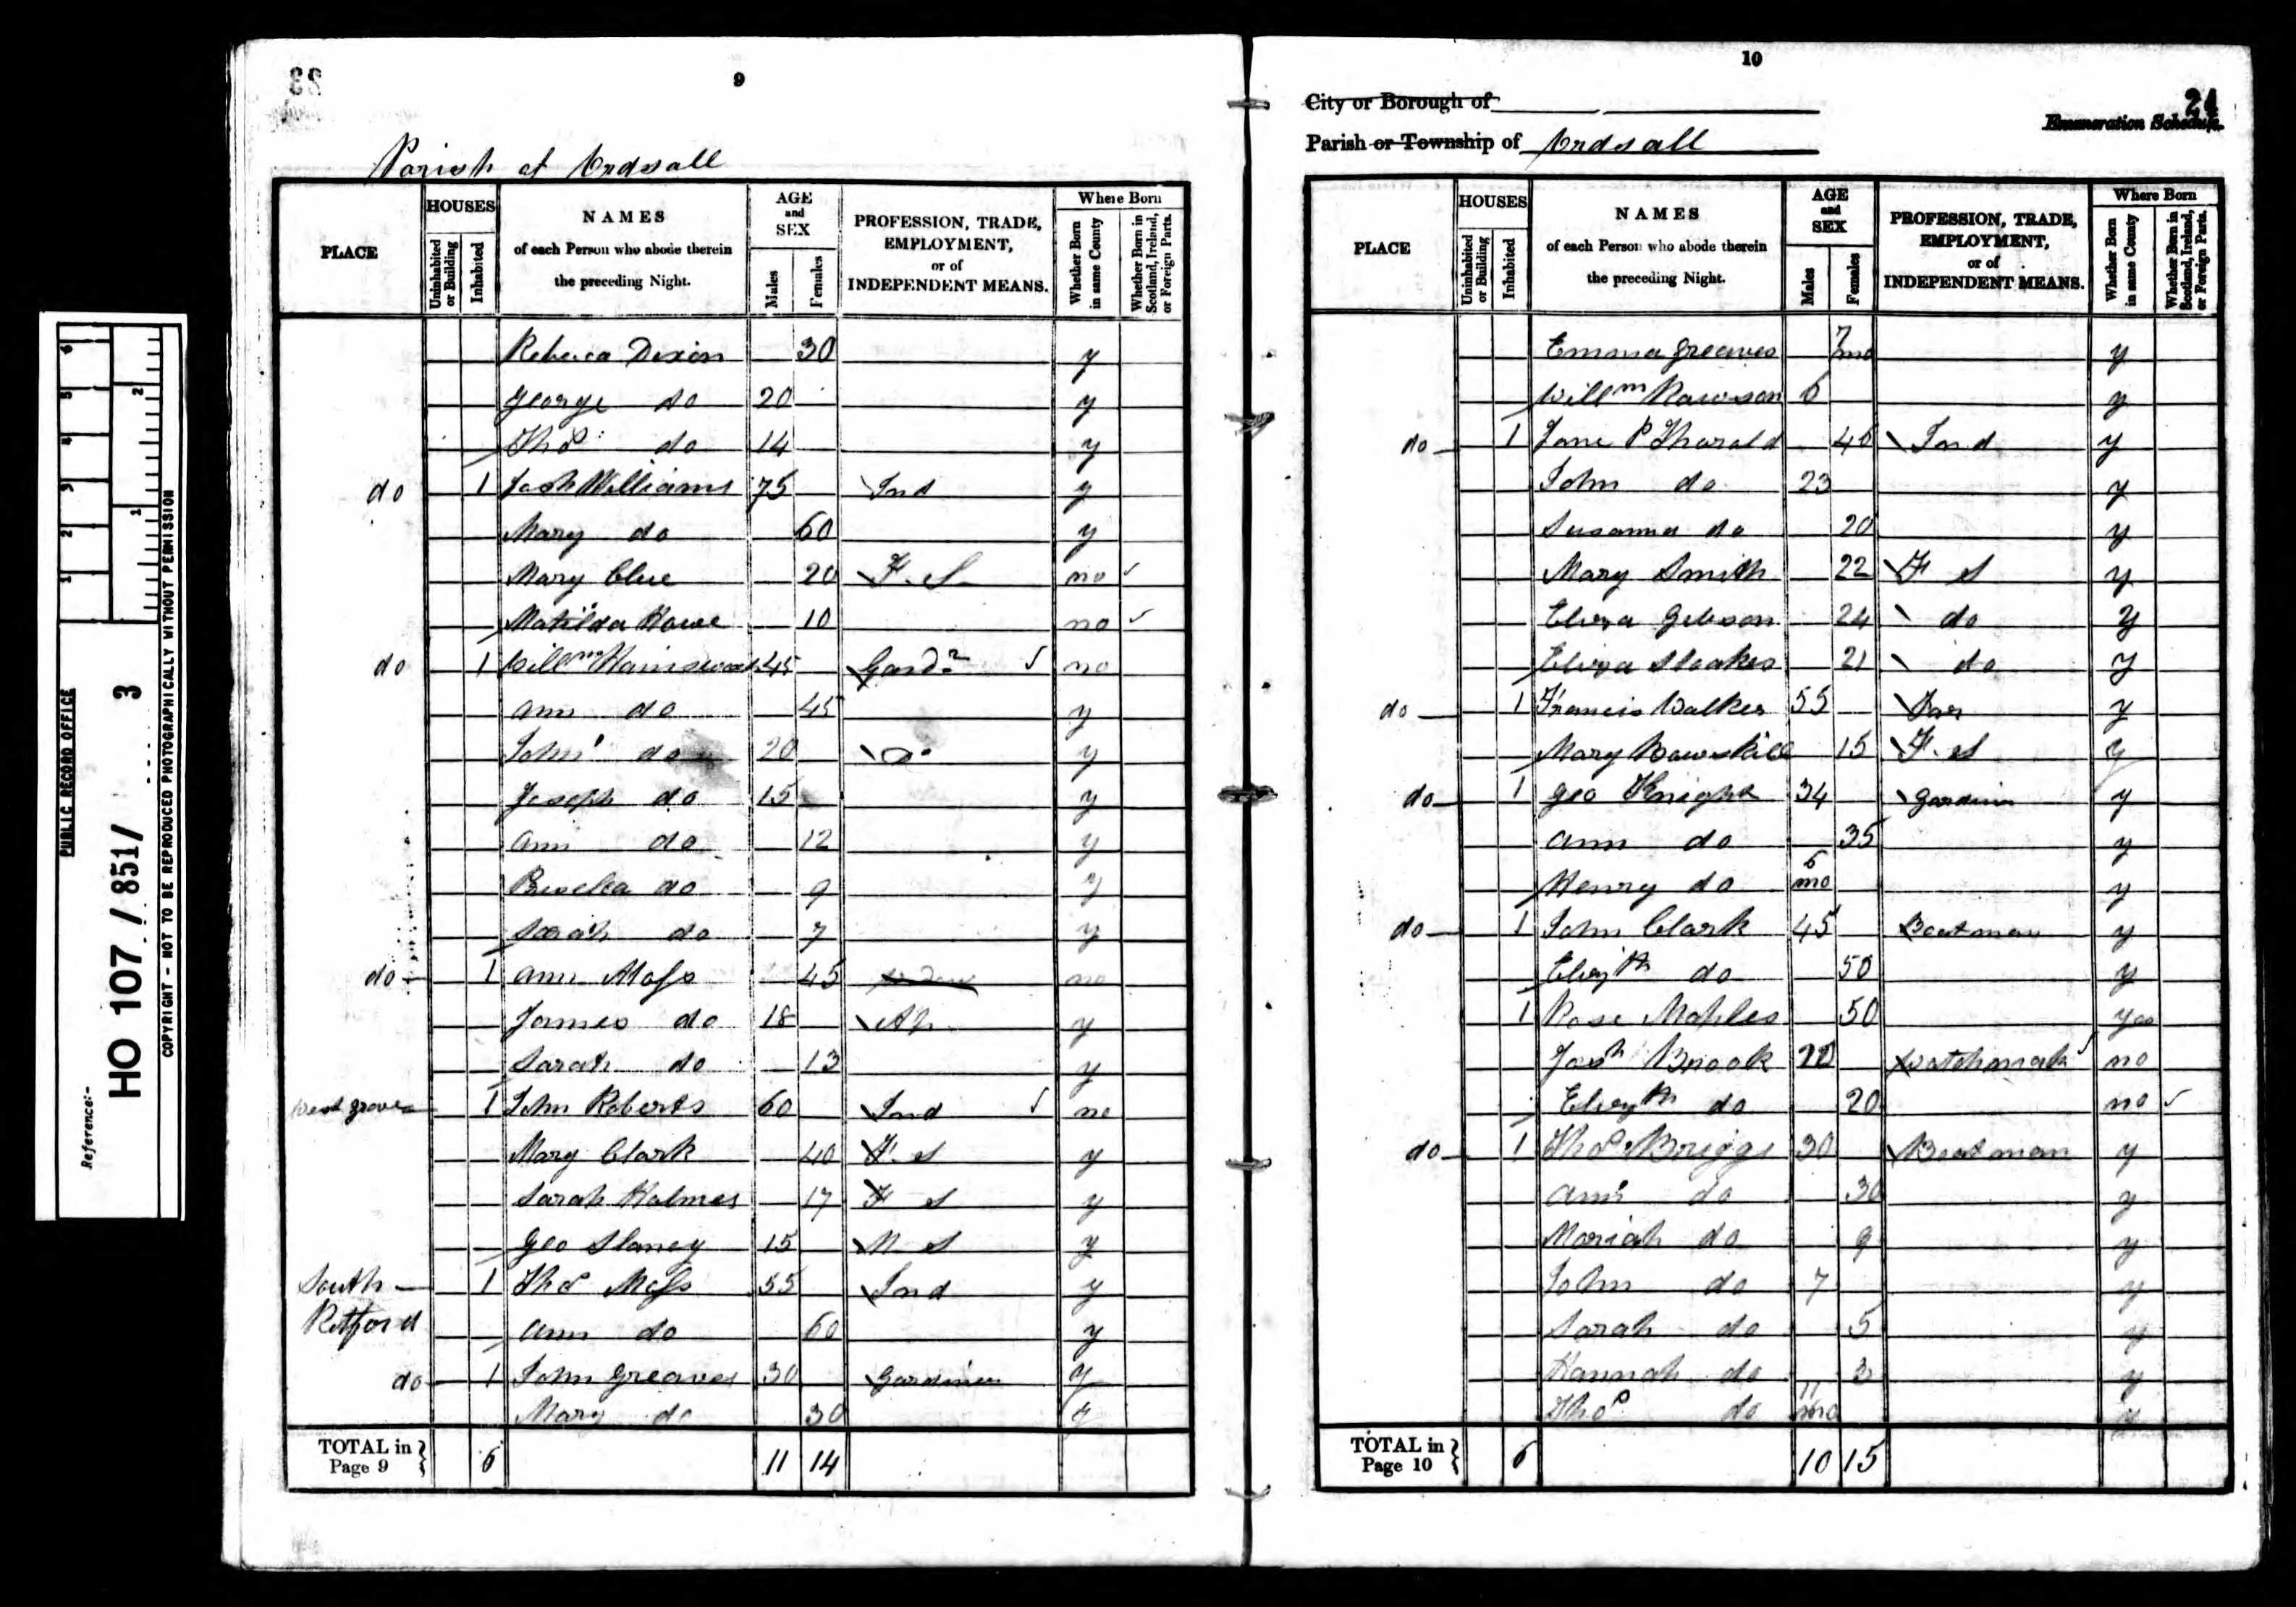 PUBLIC RECORD OFFICE
Reference:-
HO 107 / 851 / 3
COPYRIGHT - NOT TO BE REPRODUCED PHOTOGRAPHICALLY WITHOUT PERMISSION
6 5 4 3 2 1
2 1
23
9
Parish of Ordsall
PLACE
HOUSES
Uninhabited or Building
Inhabited
NAMES
of each Person who abode therein
the preceding Night.
AGE
and
SEX
Males
Females
PROFESSION, TRADE,
EMPLOYMENT,
or of
INDEPENDENT MEANS.
Where Born
Whether Born in same County
Whether Born in Scotland, Ireland, or Foreign Parts.
Rebecca Dixon 30 y
George do 20 y
Thos do 14 y
do 1 Josh Williams 75 Ind y
Mary do 60 y
Mary Clue 20 F. S no
Matilda Howe 10 no
do 1 Willm 45 Gardr no
Ann do 45 y
John do 20 Do y
Joseph do 15 y
Ann do 12 y
do 9 y
Sarah do 7 y
do 1 Ann Moss 45 no
James do 18 Ap y
Sarah do 13 y
West grove 1 John Roberts 60 Ind no
Mary Clark 40 F. S y
Sarah Holmes 17 F S y
Geo Slaney 15 M S y
South 1 Thos Moss 55 Ind y
Retford
Ann do 60 y
do 1 John Greaves 30 Gardiner y
Mary do 30 y
TOTAL in
Page 9 } 6 11 14
10
City or Borough of
24
Enumeration Schedule.
Parish or Township of Ordsall
PLACE
HOUSES
Uninhabited or Building
Inhabited
NAMES
of each Person who abode therein
the preceding Night.
AGE
and
SEX
Males
Females
PROFESSION, TRADE,
EMPLOYMENT,
or of
INDEPENDENT MEANS.
Where Born
Whether Born in same County
Whether Born in Scotland, Ireland, or Foreign Parts.
Emma Greaves 7 mo y
Willm Rawson 6 y
do 1 Jane P Tharald 46 Ind y
John do 23 y
Susanna do 20 y
Mary Smith 22 F S y
Eliza Gibson 24 do y
Eliza Stoakes 21 do y
do 1 Francis Walker 55 y
Mary 15 F. S y
do 1 Geo Knight 34 Gardiner y
Ann do 35 y
Henry do 6 mo y
do 1 John Clark 45 Boatman y
Elizth do 50 y
1 Rose Maples 50 yes
Josh Brook Watchmak no
Elizth do 20 no
do 1 Thos Briggs 30 Boatman y
Ann do 30 y
Mariah do 9 y
John do 7 y
Sarah do 5 y
Hannah do 3 y
Thos do 11 mo y
TOTAL in
Page 10 } 6 10 15